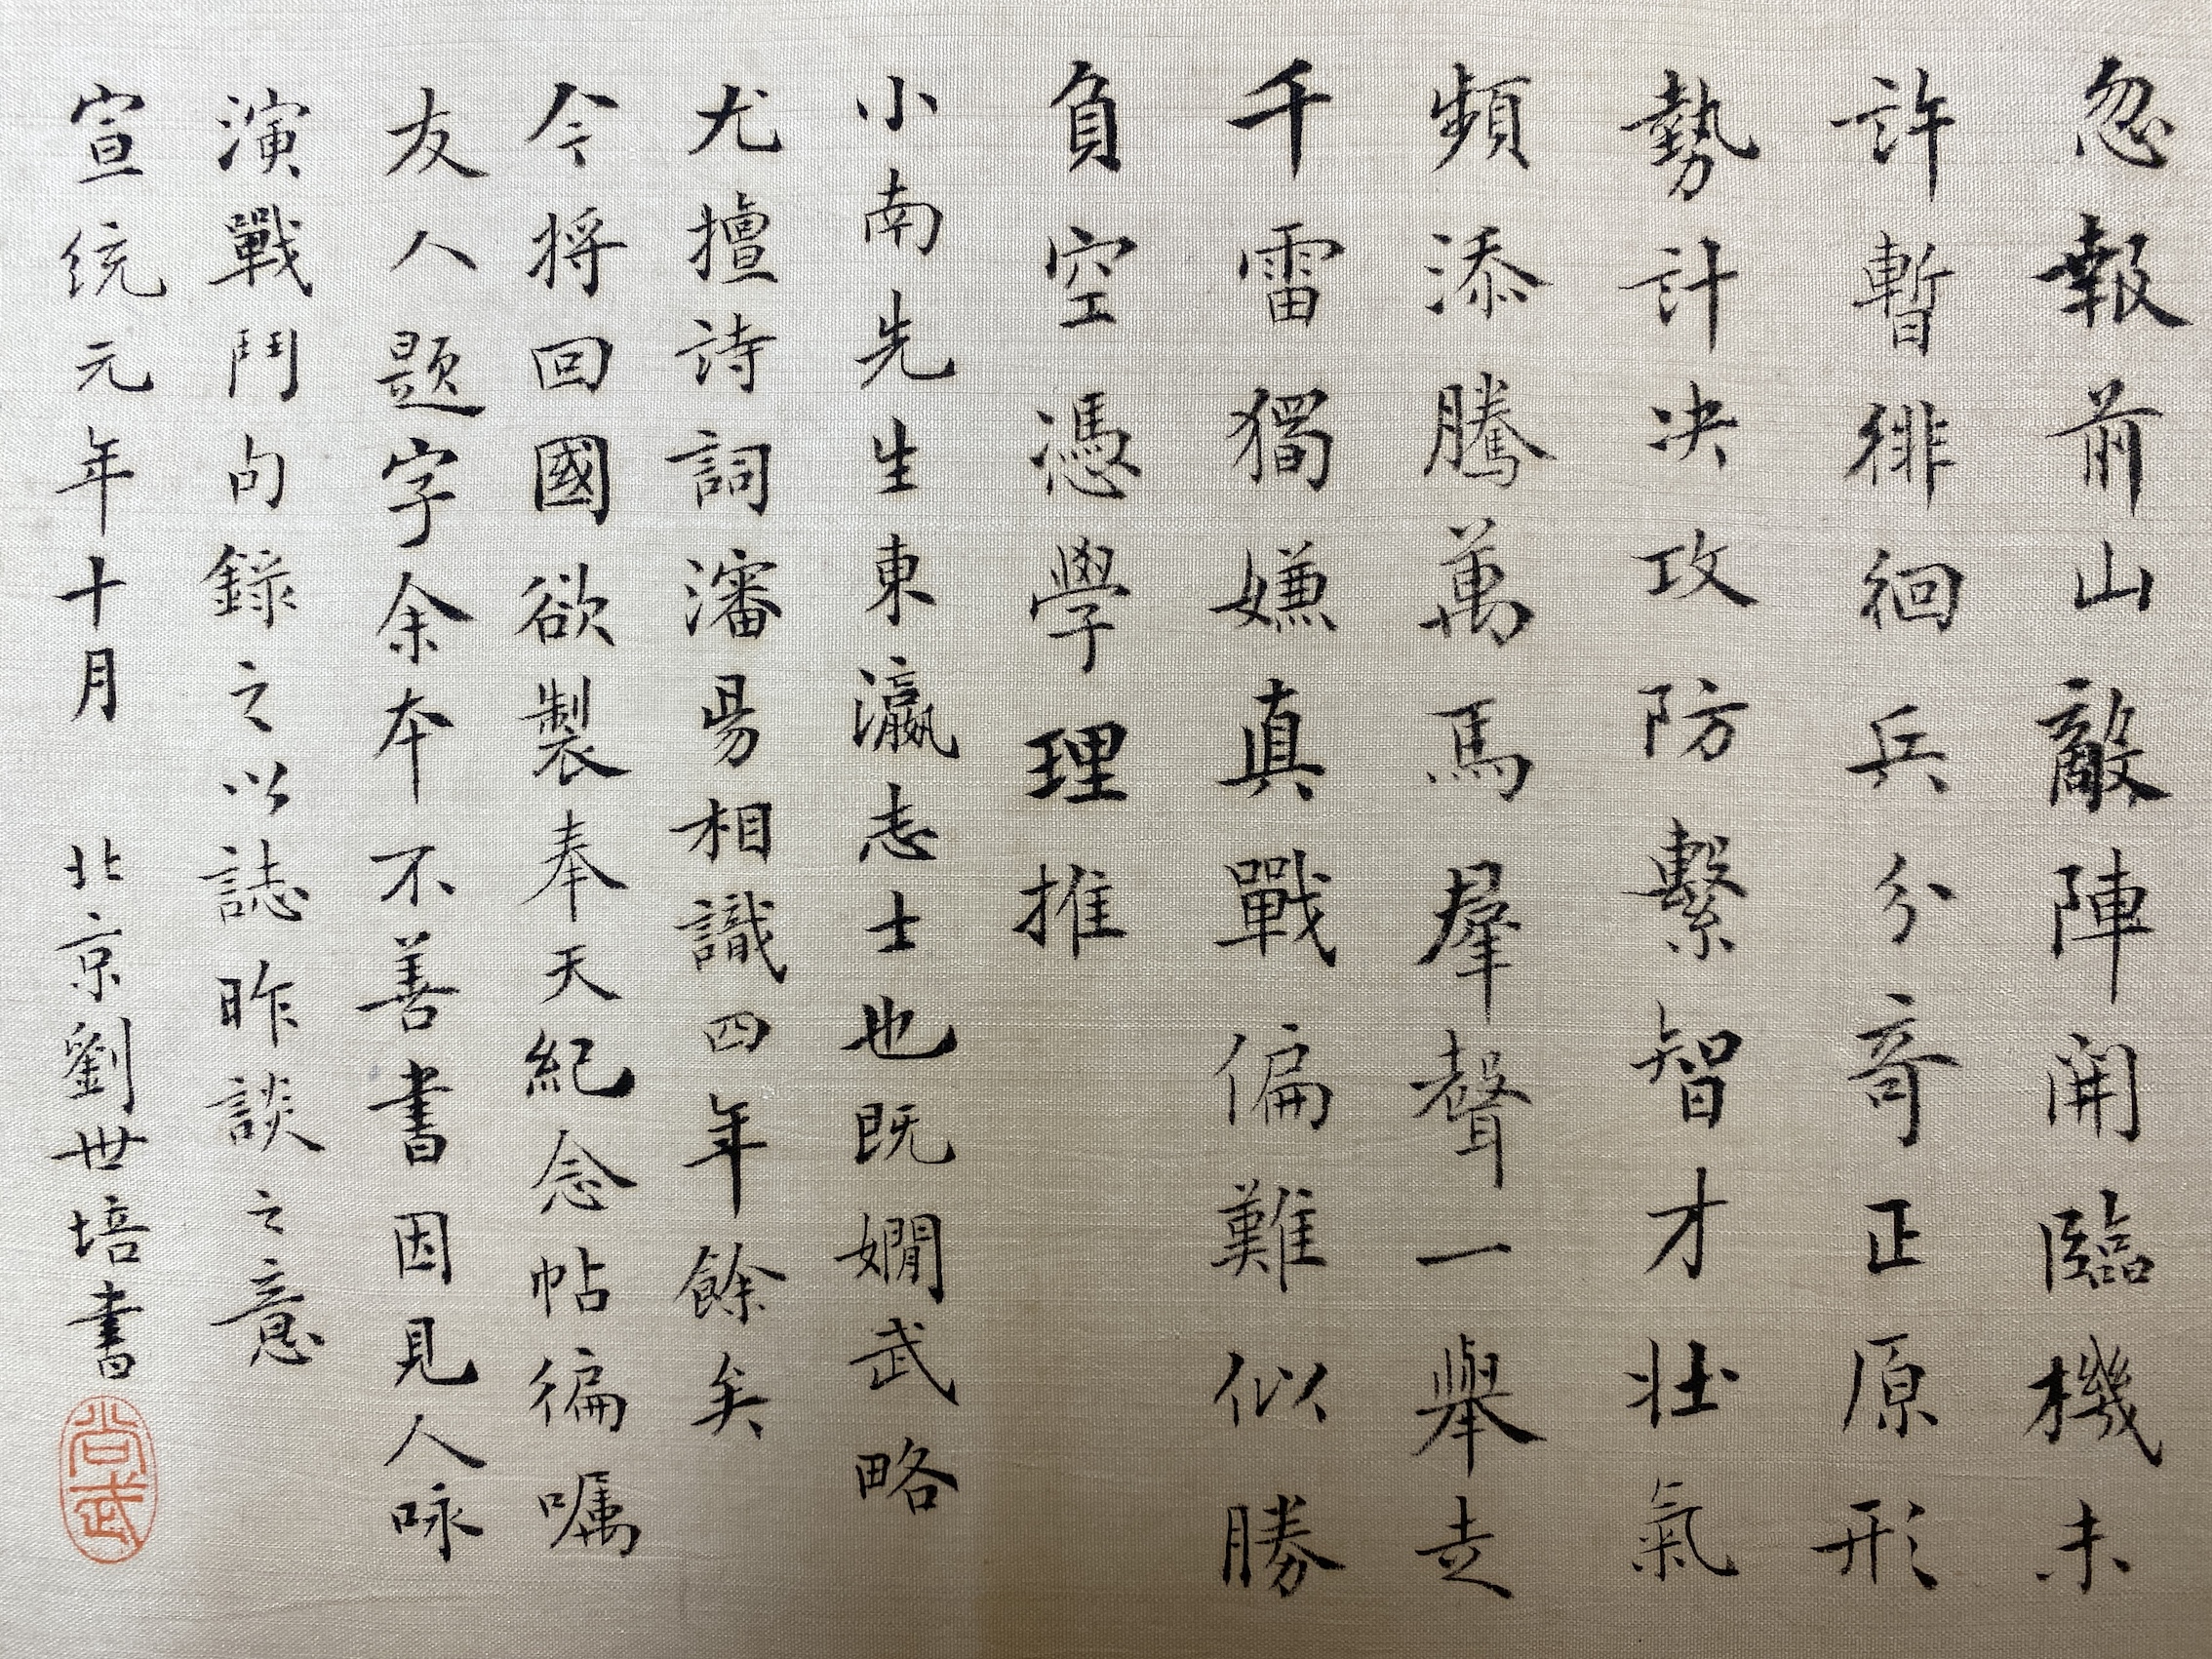 忽報前山敵陣開臨機未
許暫徘徊兵分奇正原形
勢計決攻防繫智才壯氣
頻添騰萬馬羣聲一舉走
千雷獨嫌真戰偏難似勝
負空憑學理推
小南先生東瀛志士也既嫺武略
尤擅詩詞瀋昜相識四年餘矣
今将回國欲製奉天紀念帖徧囑
友人題字余本不善書因見人咏
演戰鬥句錄之以誌昨談之意
宣統元年十月 北京劉世培書
尚武